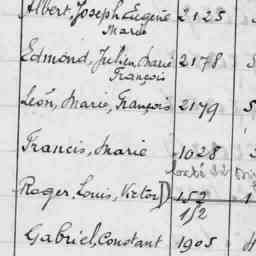 Albert, Joseph Eugène 2125
Marie
Edmond, Julien, Marie 2178
François
Léon, Marie, François 2179
Francis, Marie 1028
Roger, Louis, Victor, D) 152
1/2
Gabriel, Constant 1905